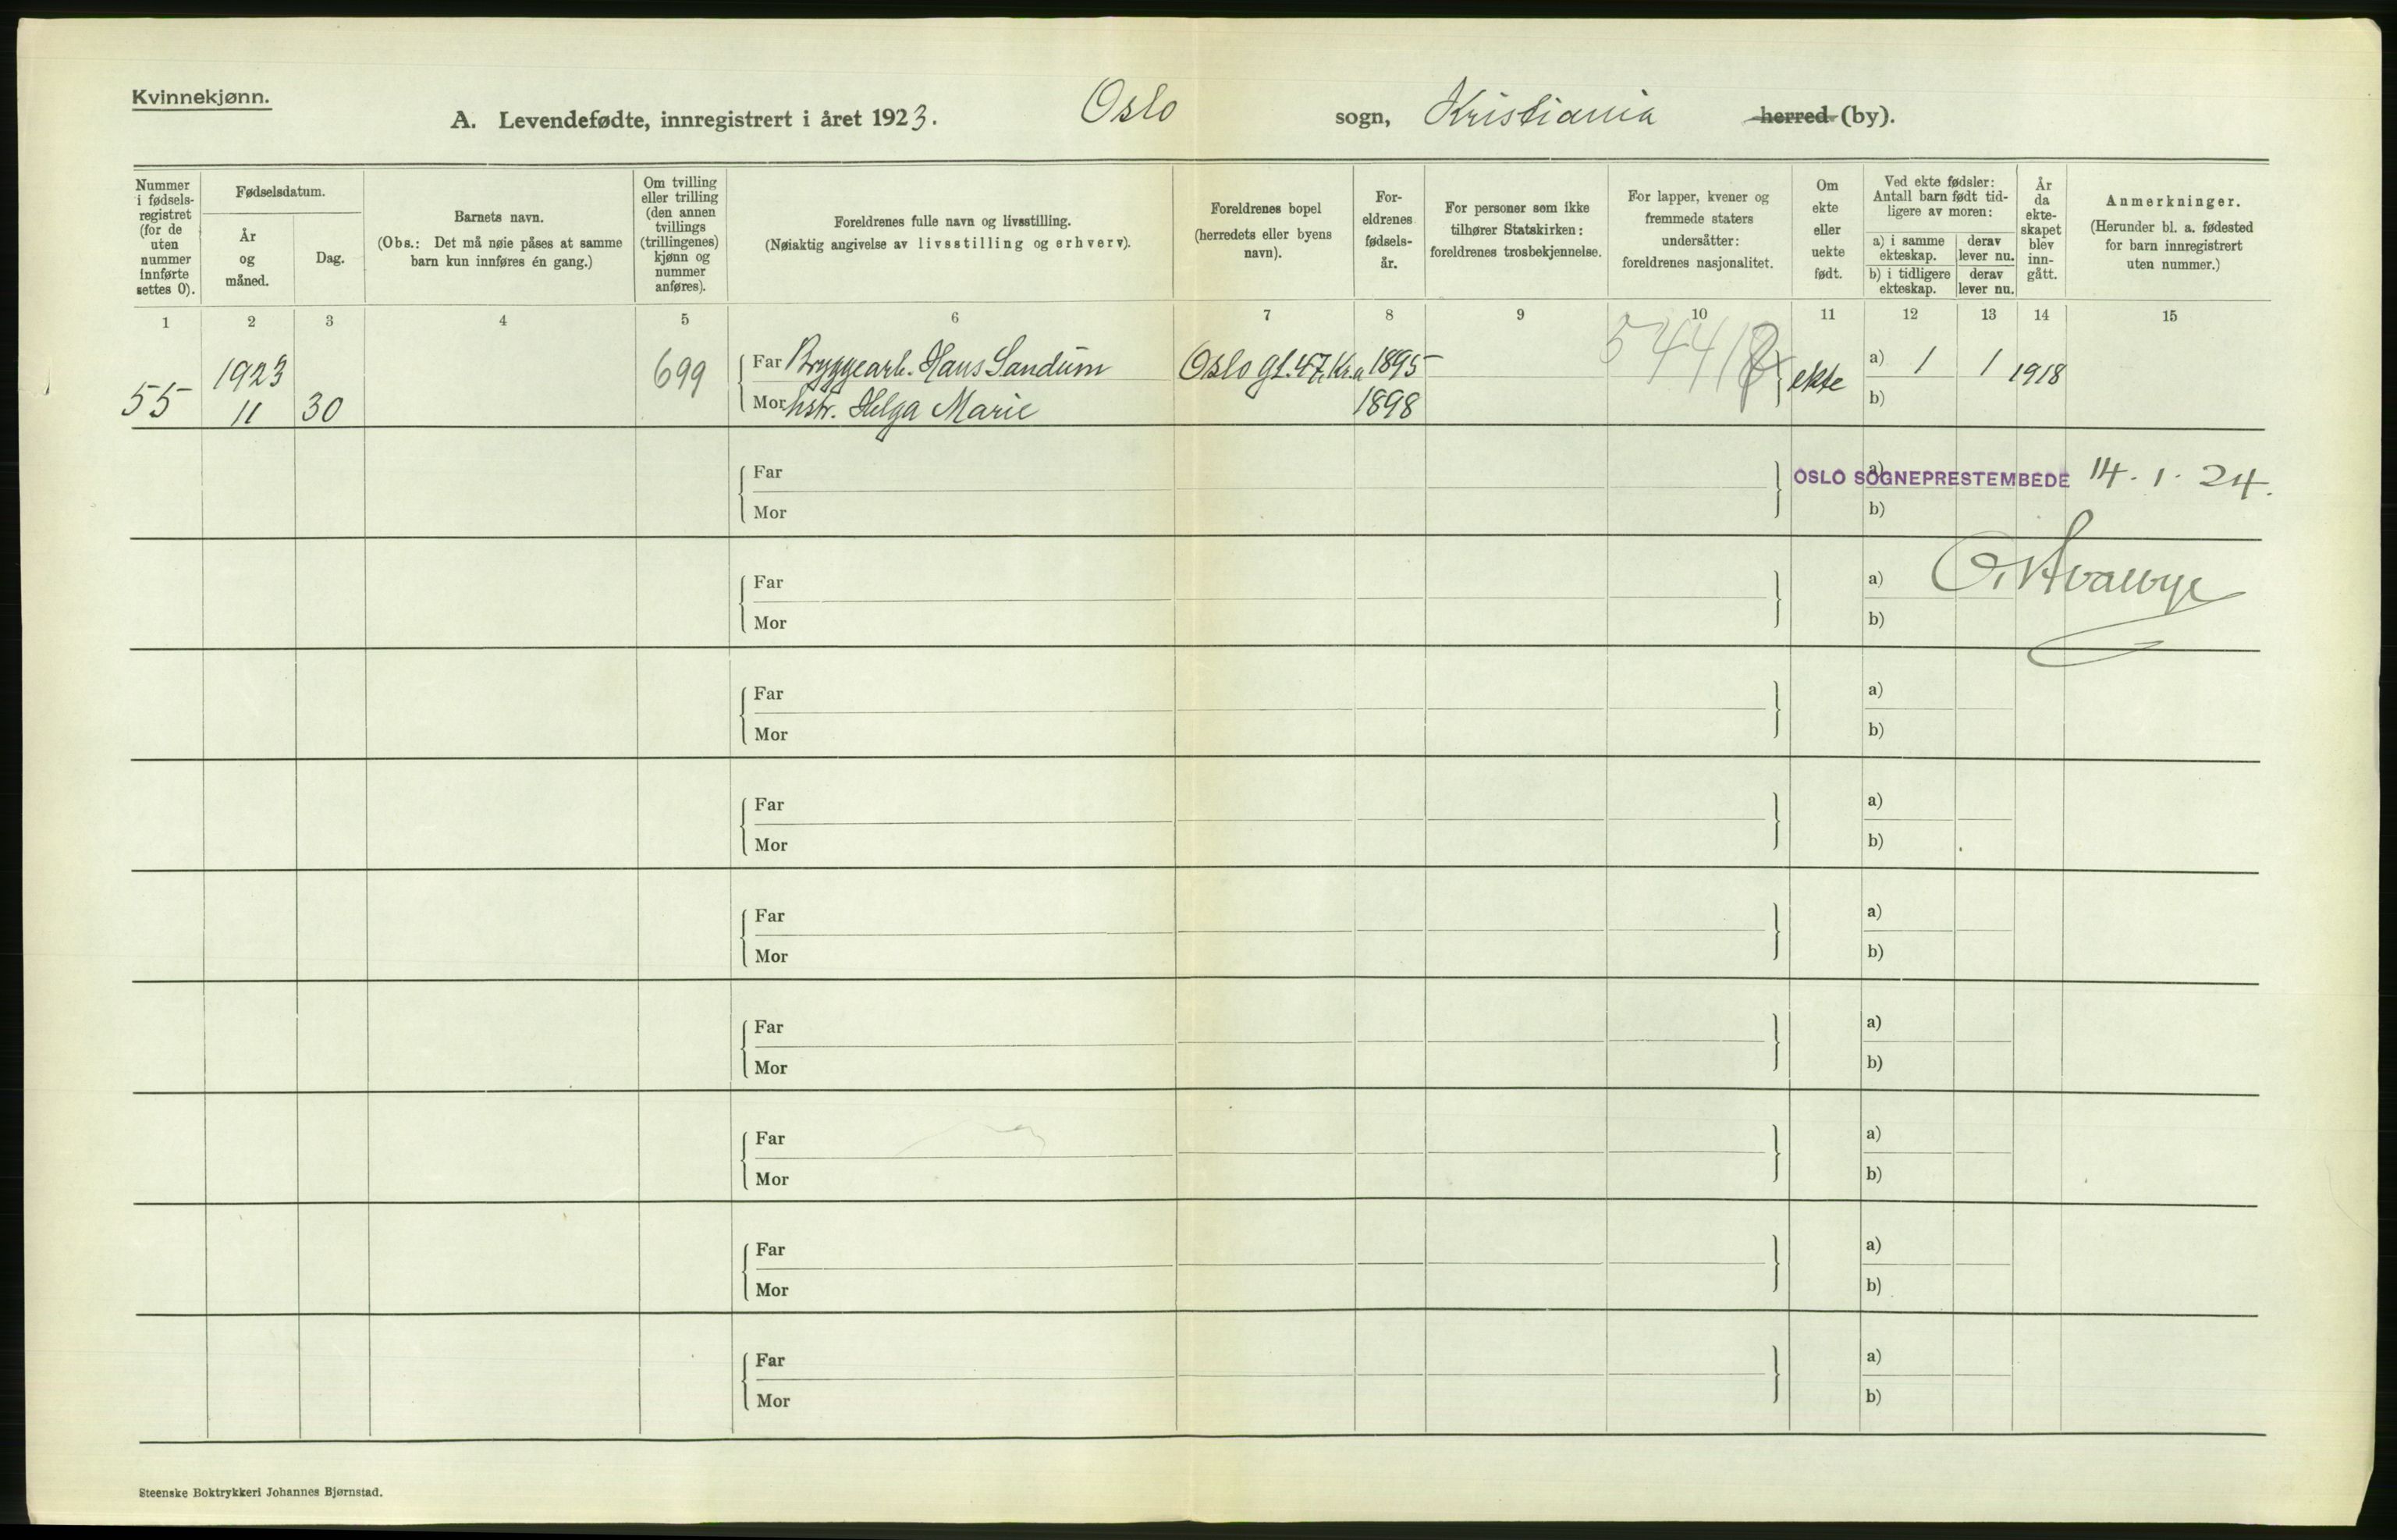 Kvinnekjønn.
A. Levendefødte, innregistrert i året 1923. Oslo sogn, Kristiania herred (by).
Nummer i fødsels-registret (for de uten nummer innførte settes 0).
Fødselsdatum.
År og måned.
Dag.
Barnets navn.
(Obs.: Det må nøie påses at samme barn kun innføres én gang.)
Om tvilling eller trilling (den annen tvillings (trillingenes) kjønn og nummer anføres).
Foreldrenes fulle navn og livsstilling.
(Nøiaktig angivelse av livsstilling og erhverv).
Foreldrenes bopel (herredets eller byens navn).
For-eldrenes fødsels-år.
For personer som ikke tilhører Statskirken: foreldrenes trosbekjennelse.
For lapper, kvener og fremmede staters undersåtter: foreldrenes nasjonalitet.
Om ekte eller uekte født.
Ved ekte fødsler: Antall barn født tid-ligere av moren:
a) i samme ekteskap.
derav lever nu.
b) i tidligere ekteskap.
derav lever nu.
År da ekte-skapet blev inn-gått.
Anmerkninger.
(Herunder bl. a. fødested for barn innregistrert uten nummer.)
1 2 3 4 5 6 7 8 9 10 11 12 13 14 15
55 1923 11 30 699
Far Bryggearb. Hans Sandum Oslo gt. 47, Kr.a 1895
Mor hstr. Helga Marie 1898
ekte a) 1 1 1918
b)
Far a)
OSLO SOGNEPRESTEMBEDE 14. 1. 24.
Mor b)
Far a)
Mor b)
Far a)
Mor b)
Far a)
Mor b)
Far a)
Mor b)
Far a)
Mor b)
Far a)
Mor b)
Far a)
Mor b)
Far a)
Mor b)
Steenske Boktrykkeri Johannes Bjørnstad.